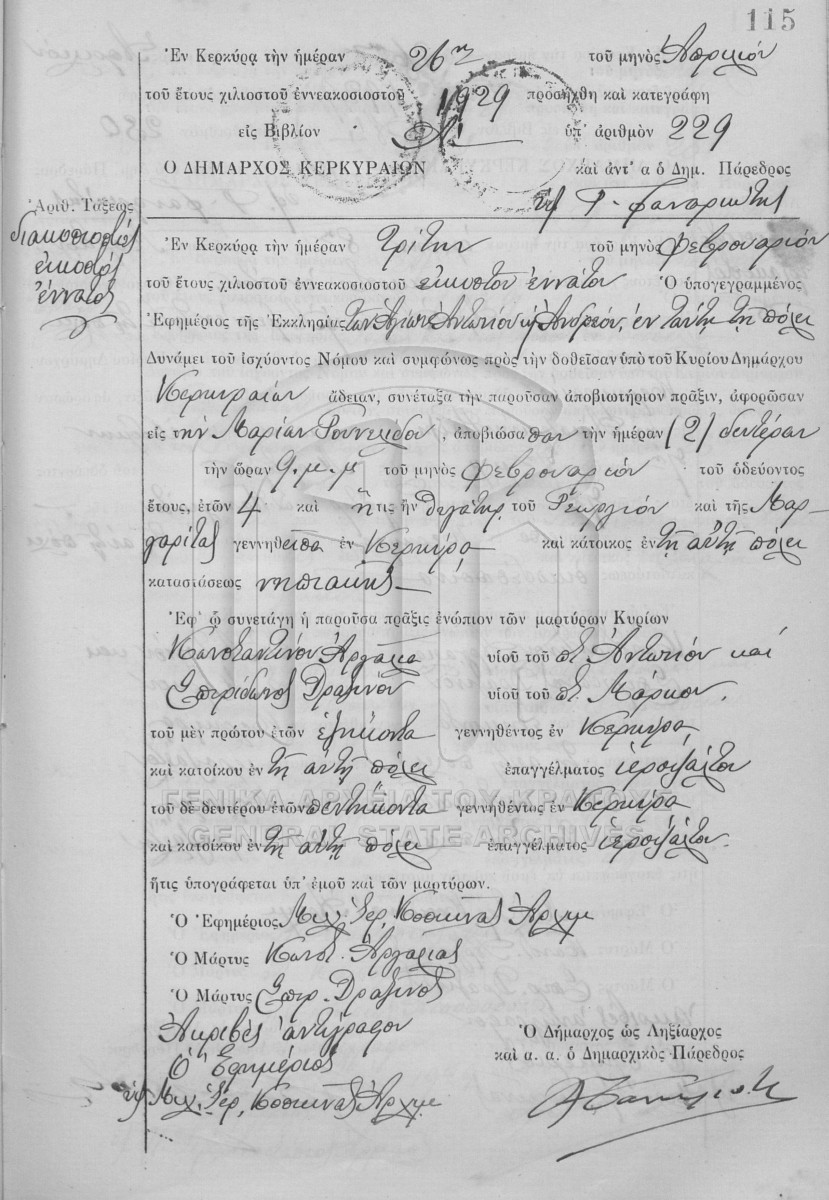 115
Ἐν Κερκύρᾳ τὴν ἡμέραν 26ην τοῦ μηνὸς Ἀπριλίου
τοῦ ἔτους χιλιοστοῦ ἐννεακοσιοστοῦ 1929 προσήχθη καὶ κατεγράφη
εἰς Βιβλίον Α! ὑπ' ἀριθμὸν 229
Ο ΔΗΜΑΡΧΟΣ ΚΕΡΚΥΡΑΙΩΝ καὶ ἀντ' α ὁ Δημ. Πάρεδρος
Γ. Φαναριώτης
Ἀριθ. Τάξεως
διακοσιοστός
εἰκοστός
ἔννατος
Ἐν Κερκύρᾳ τὴν ἡμέραν Τρίτην τοῦ μηνὸς Φεβρουαρίου
τοῦ ἔτους χιλιοστοῦ ἐννεακοσιοστοῦ εἰκοστοῦ ἐννάτου Ὁ ὑπογεγραμμένος
Ἐφημέριος τῆς Ἐκκλησίας τῶν Ἁγίων Ἀντωνίου κ Ἀνδρέου, ἐν ταύτῃ τῇ πόλει
Δυνάμει τοῦ ἰσχύοντος Νόμου καὶ συμφώνως πρὸς τὴν δοθεῖσαν ὑπὸ τοῦ Κυρίου Δημάρχου
Κερκυραίων ἄδειαν, συνέταξα τὴν παροῦσαν ἀποβιωτήριον πρᾶξιν, ἀφορῶσαν
εἰς τὴν Μαρίαν Γουνελδου, ἀποβιώσασαν τὴν ἡμέραν (2) δευτέραν
τὴν ὥραν 9. μ. μ τοῦ μηνὸς Φεβρουαρίου τοῦ ὁδεύοντος
ἔτους, ἐτῶν 4 καὶ ἥτις ἦν θυγάτηρ τοῦ Γεωργίου καὶ τῆς Μαρ-
γαρίτας γεννηθεῖσα ἐν Κερκύρᾳ καὶ κάτοικος ἐν τῇ αὐτῇ πόλει
καταστάσεως νηπιακῆς
Ἐφ' ᾧ συνετάγη ἡ παροῦσα πρᾶξις ἐνώπιον τῶν μαρτύρων Κυρίων
Κωνσταντίνου Ἀργαλία υἱοῦ τοῦ πτ Ἀντωνίου καὶ
Σπυρίδωνος Δραζίνου υἱοῦ τοῦ πτ. Μάρκου,
τοῦ μὲν πρώτου ἐτῶν ἑξήκοντα γεννηθέντος ἐν Κερκύρᾳ
καὶ κατοίκου ἐν τῇ αὐτῇ πόλει ἐπαγγέλματος ἱεροψάλτου
τοῦ δὲ δευτέρου ἐτῶν πεντήκοντα γεννηθέντος ἐν Κερκύρᾳ
καὶ κατοίκου ἐν τῇ αὐτῇ πόλει ἐπαγγέλματος ἱεροψάλτου.
ἥτις ὑπογράφεται ὑπ' ἐμοῦ καὶ τῶν μαρτύρων.
Ὁ Ἐφημέριος Μιχ. Ἱερ. Κοσκινᾶς Ἀρχιμ
Ὁ Μάρτυς Κωνστ. Ἀργαλίας
Ὁ Μάρτυς Σπυρ. Δραζίνος
Ἀκριβὲς ἀντίγραφον
Ὁ Ἐφημέριος
Μιχ. Ἱερ. Κοσκινᾶς Ἀρχιμ
Ὁ Δήμαρχος ὡς Ληξίαρχος
καὶ α. α. ὁ Δημαρχικὸς Πάρεδρος
ΓΕΝΙΚΑ ΑΡΧΕΙΑ ΤΟΥ ΚΡΑΤΟΥΣ
GENERAL STATE ARCHIVES